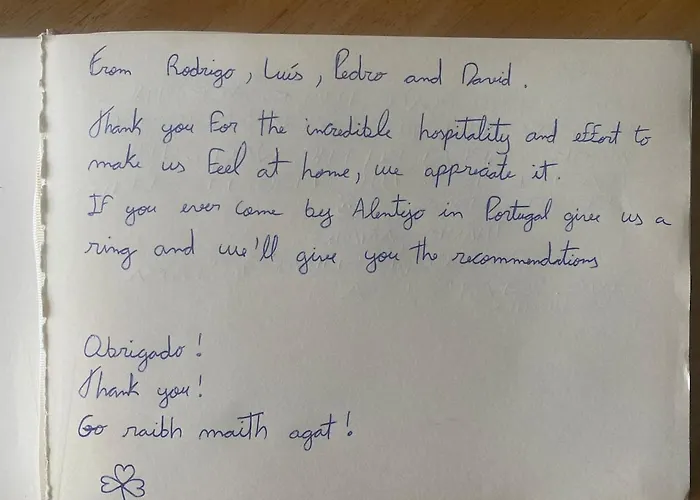 From Rodrigo, Luís, Pedro and David.
Thank you for the incredible hospitality and effort to
make us feel at home, we appriciate it.
If you ever come by Alentejo in Portugal give us a
ring and we'll give you the recommendations
Obrigado!
Thank you!
Go raibh maith agat!